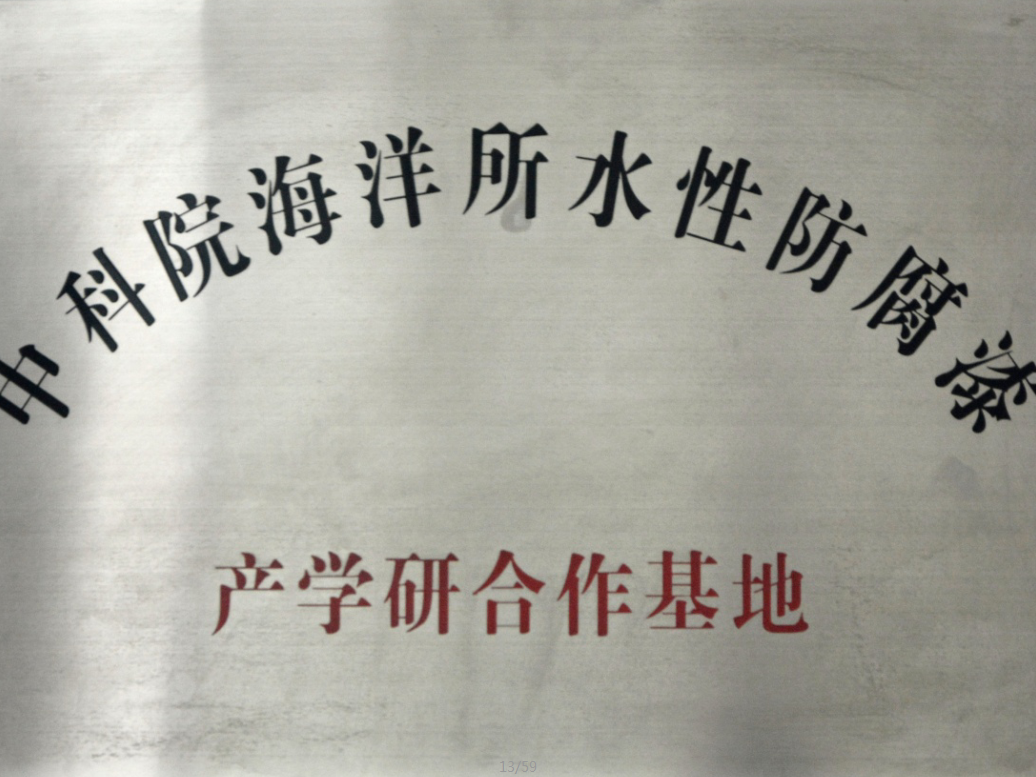 中科院海洋所水性防腐漆
产学研合作基地
13/59